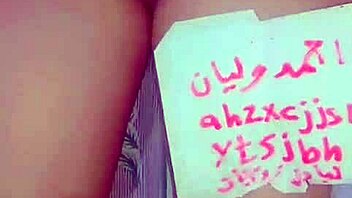 احمد وليان
ahzxcjjsl
ytsjbh